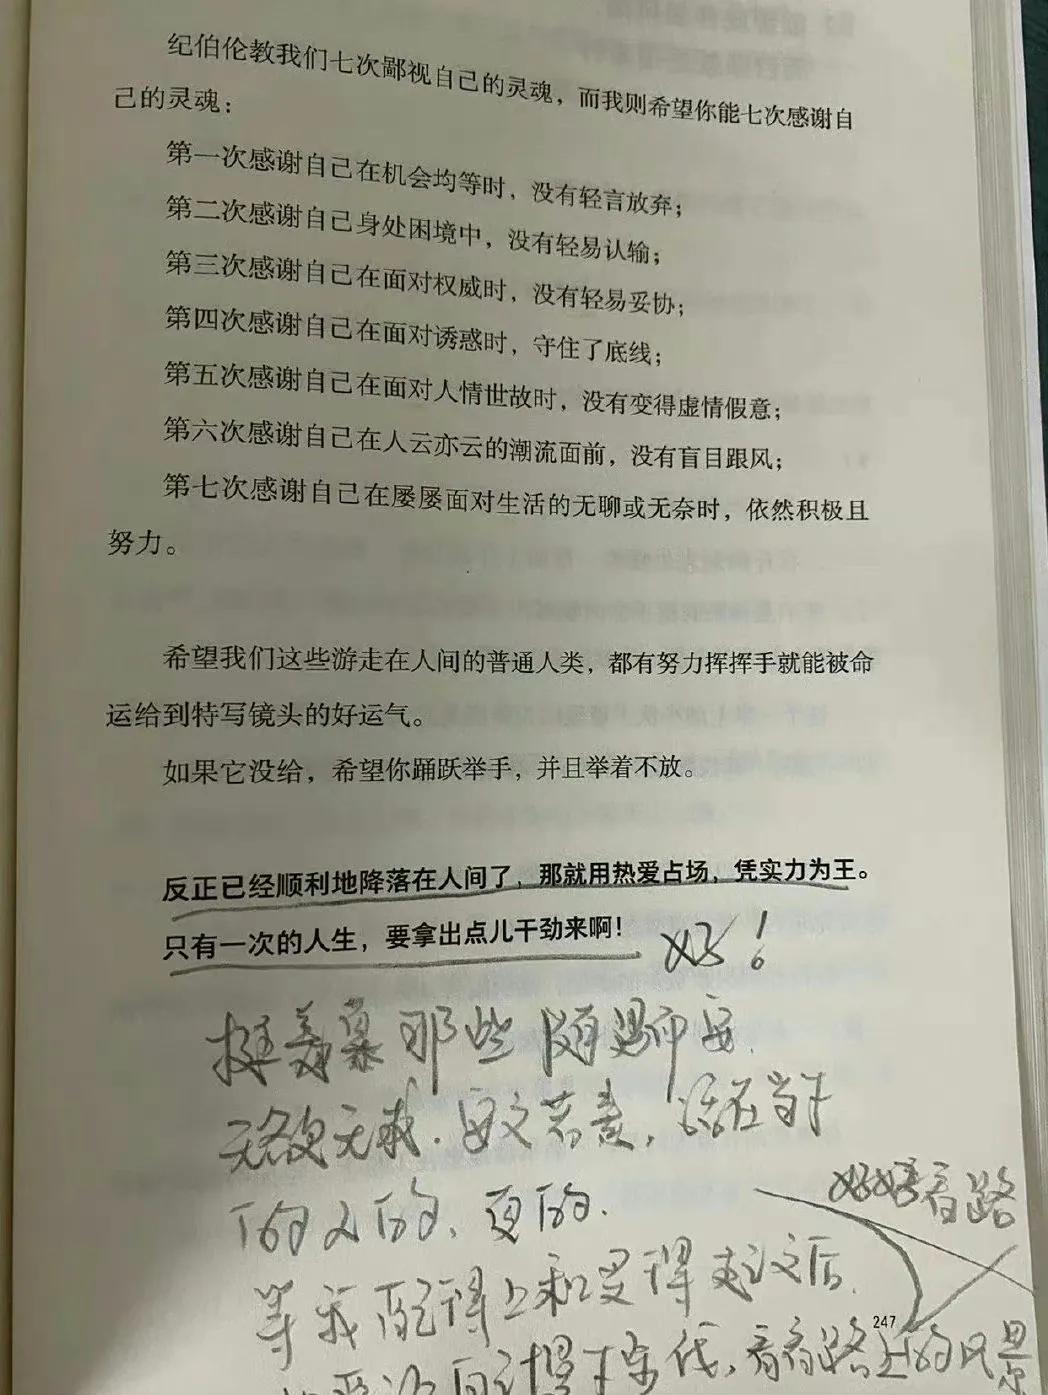 纪伯伦教我们七次鄙视自己的灵魂，而我则希望你能七次感谢自
己的灵魂：
第一次感谢自己在机会均等时，没有轻言放弃；
第二次感谢自己身处困境中，没有轻易认输；
第三次感谢自己在面对权威时，没有轻易妥协；
第四次感谢自己在面对诱惑时，守住了底线；
第五次感谢自己在面对人情世故时，没有变得虚情假意；
第六次感谢自己在人云亦云的潮流面前，没有盲目跟风；
第七次感谢自己在屡屡面对生活的无聊或无奈时，依然积极且
努力。
希望我们这些游走在人间的普通人类，都有努力挥挥手就能被命
运给到特写镜头的好运气。
如果它没给，希望你踊跃举手，并且举着不放。
反正已经顺利地降落在人间了，那就用热爱占场，凭实力为王。
只有一次的人生，要拿出点儿干劲来啊！
好！
挺羡慕那些随遇而安
无欲无求．安之若素，活在当下
的人的，真的．
好好看路
等我配得上和受得起之后，
247
自己慢下来，看看路上的风景